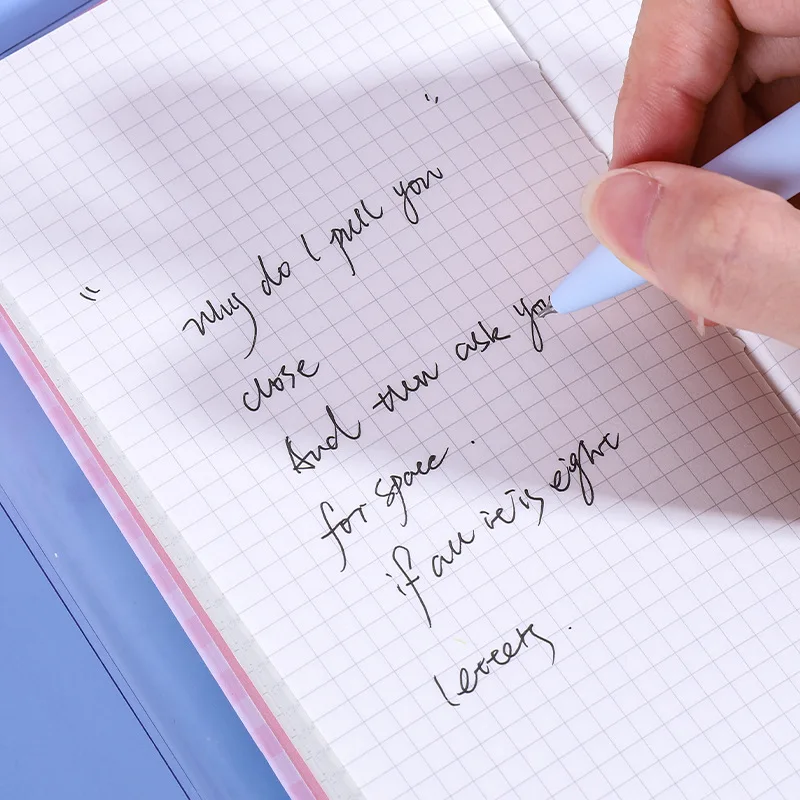 "Why do I pull you"
close
And then ask you
for space.
if all it is eight
letters.